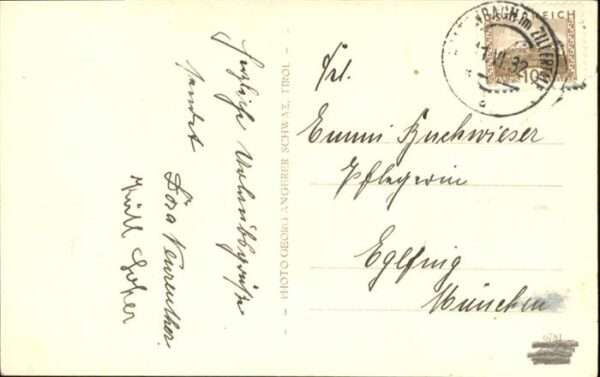 Herzliche Urlaubsgrüße
sendet
Dora Neureuther
PHOTO GEORG ANGERER SCHWAZ, TIROL
Frl.
Emmi Buchwieser
Pflegerin
Eglfing
München
IM ZILLERTAL
VI. 32
REICH
10